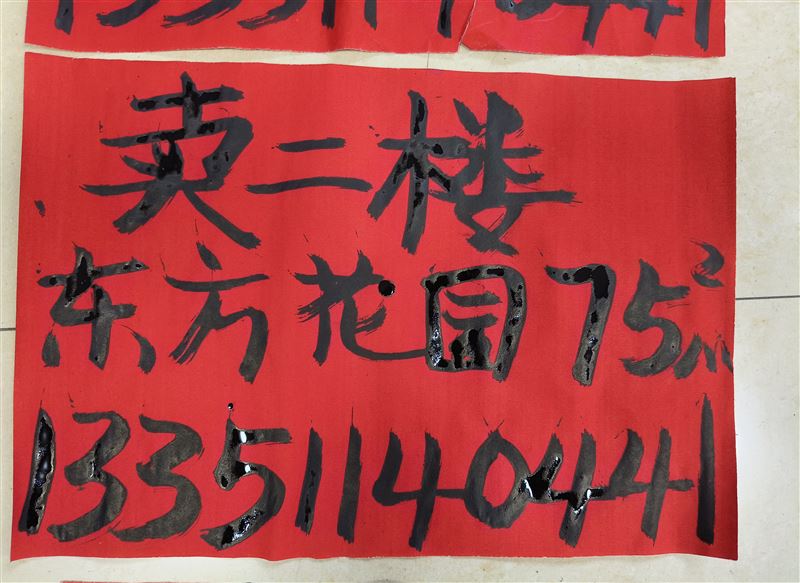 13351140441
卖二楼
东方花园75m²
13351140441